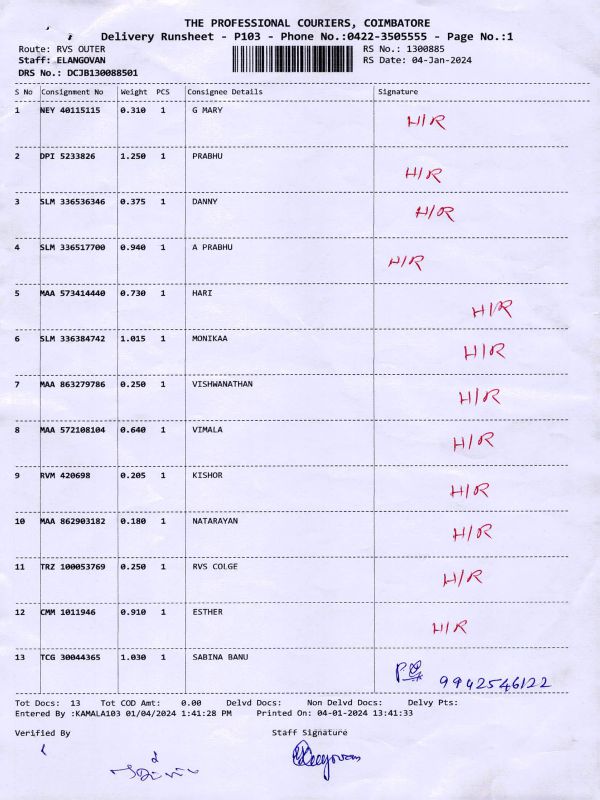 THE PROFESSIONAL COURIERS, COIMBATORE
Delivery Runsheet - P103 - Phone No.:0422-3505555 - Page No.:1
Route: RVS OUTER RS No.: 1300885
Staff: ELANGOVAN RS Date: 04-Jan-2024
DRS No.: DCJB130088501
S No Consignment No Weight PCS Consignee Details Signature
1 NEY 40115115 0.310 1 G MARY H/R
2 DPI 5233826 1.250 1 PRABHU H/R
3 SLM 336536346 0.375 1 DANNY H/R
4 SLM 336517700 0.940 1 A PRABHU H/R
5 MAA 573414440 0.730 1 HARI H/R
6 SLM 336384742 1.015 1 MONIKAA H/R
7 MAA 863279786 0.250 1 VISHWANATHAN H/R
8 MAA 572108104 0.640 1 VIMALA H/R
9 RVM 420698 0.205 1 KISHOR H/R
10 MAA 862903182 0.180 1 NATARAYAN H/R
11 TRZ 100053769 0.250 1 RVS COLGE H/R
12 CMM 1011946 0.910 1 ESTHER H/R
13 TCG 30044365 1.030 1 SABINA BANU 9942546122
Tot Docs: 13 Tot COD Amt: 0.00 Delvd Docs: Non Delvd Docs: Delvy Pts:
Entered By :KAMALA103 01/04/2024 1:41:28 PM Printed On: 04-01-2024 13:41:33
Verified By Staff Signature